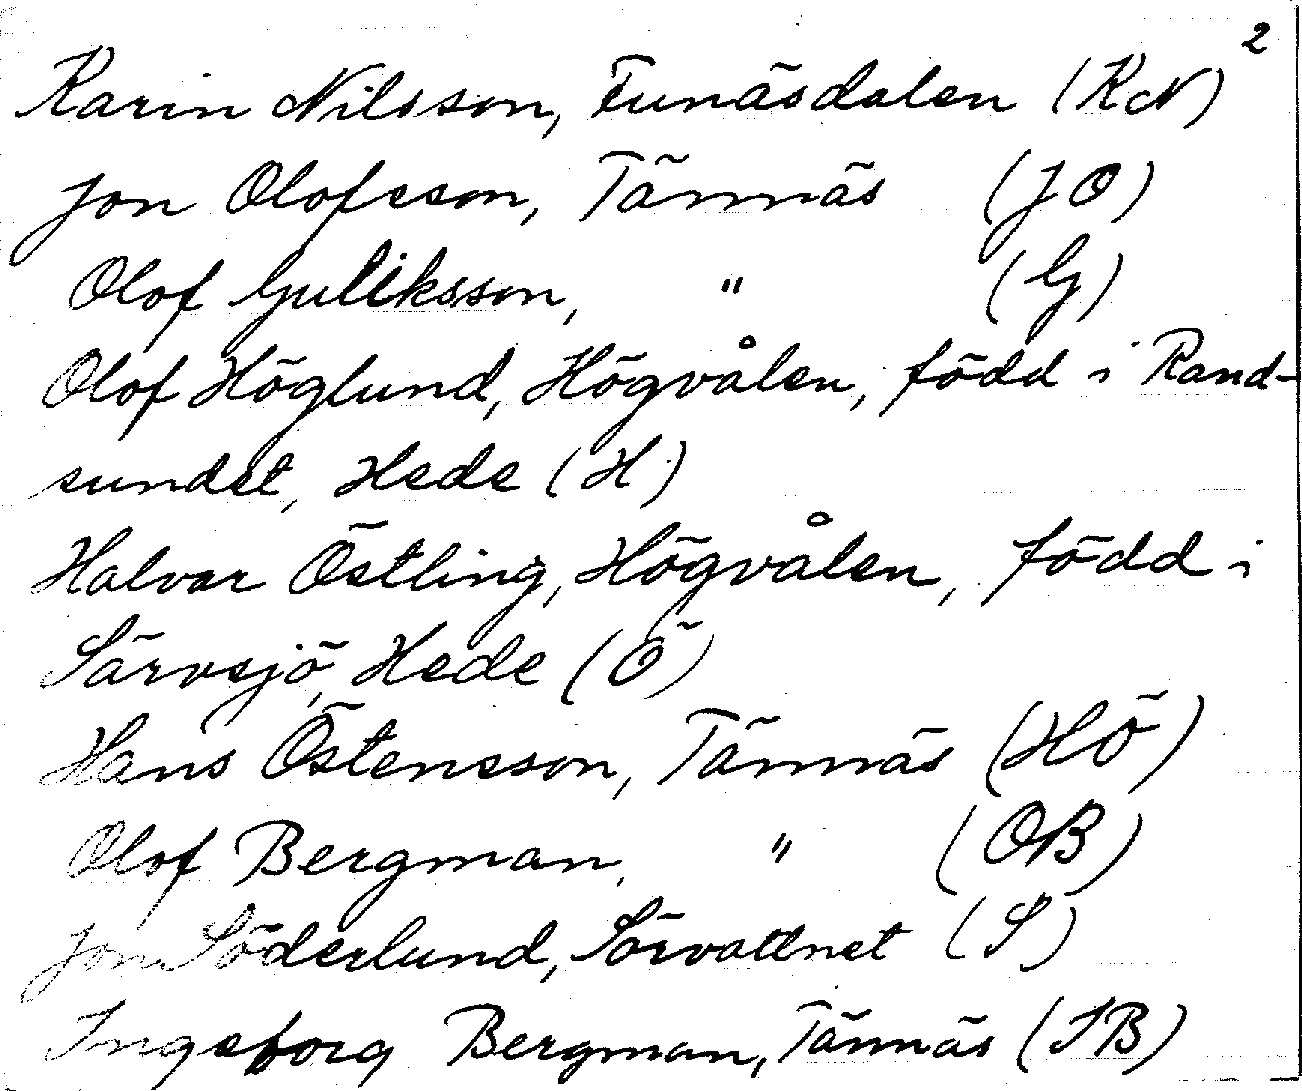 2
Karin Nilsson, Funäsdalen (KN)
Jon Olofsson, Tännäs (JO)
Olof Gulliksson, " (G)
Olof Höglund, Högvålen, född i Rand-
sundet, Hede (H)
Halvar Östling, Högvålen, född i
Särvsjö, Hede (Ö)
Hans Östensson, Tännäs (HÖ)
Olof Bergman, " (OB)
Jon Söderlund, Sörvattnet (S)
Ingeborg Bergman, Tännäs (IB)